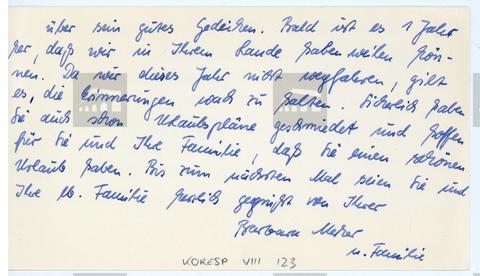 über sein gutes Gedeihen. Bald ist es 1 Jahr
her, daß wir in Ihrem Lande haben weilen kön-
nen. Da wir dieses Jahr nicht wegfahren, gilt
es, die Erinnerungen wach zu halten. Sicherlich haben
Sie auch schon Urlaubspläne geschmiedet und hoffen
für Sie und Ihre Familie, daß Sie einen schönen
Urlaub haben. Bis zum nächsten Mal seien Sie und
Ihre lb. Familie herzlich gegrüßt von Ihrer
Barbara
u. Familie
KORESP VIII 123